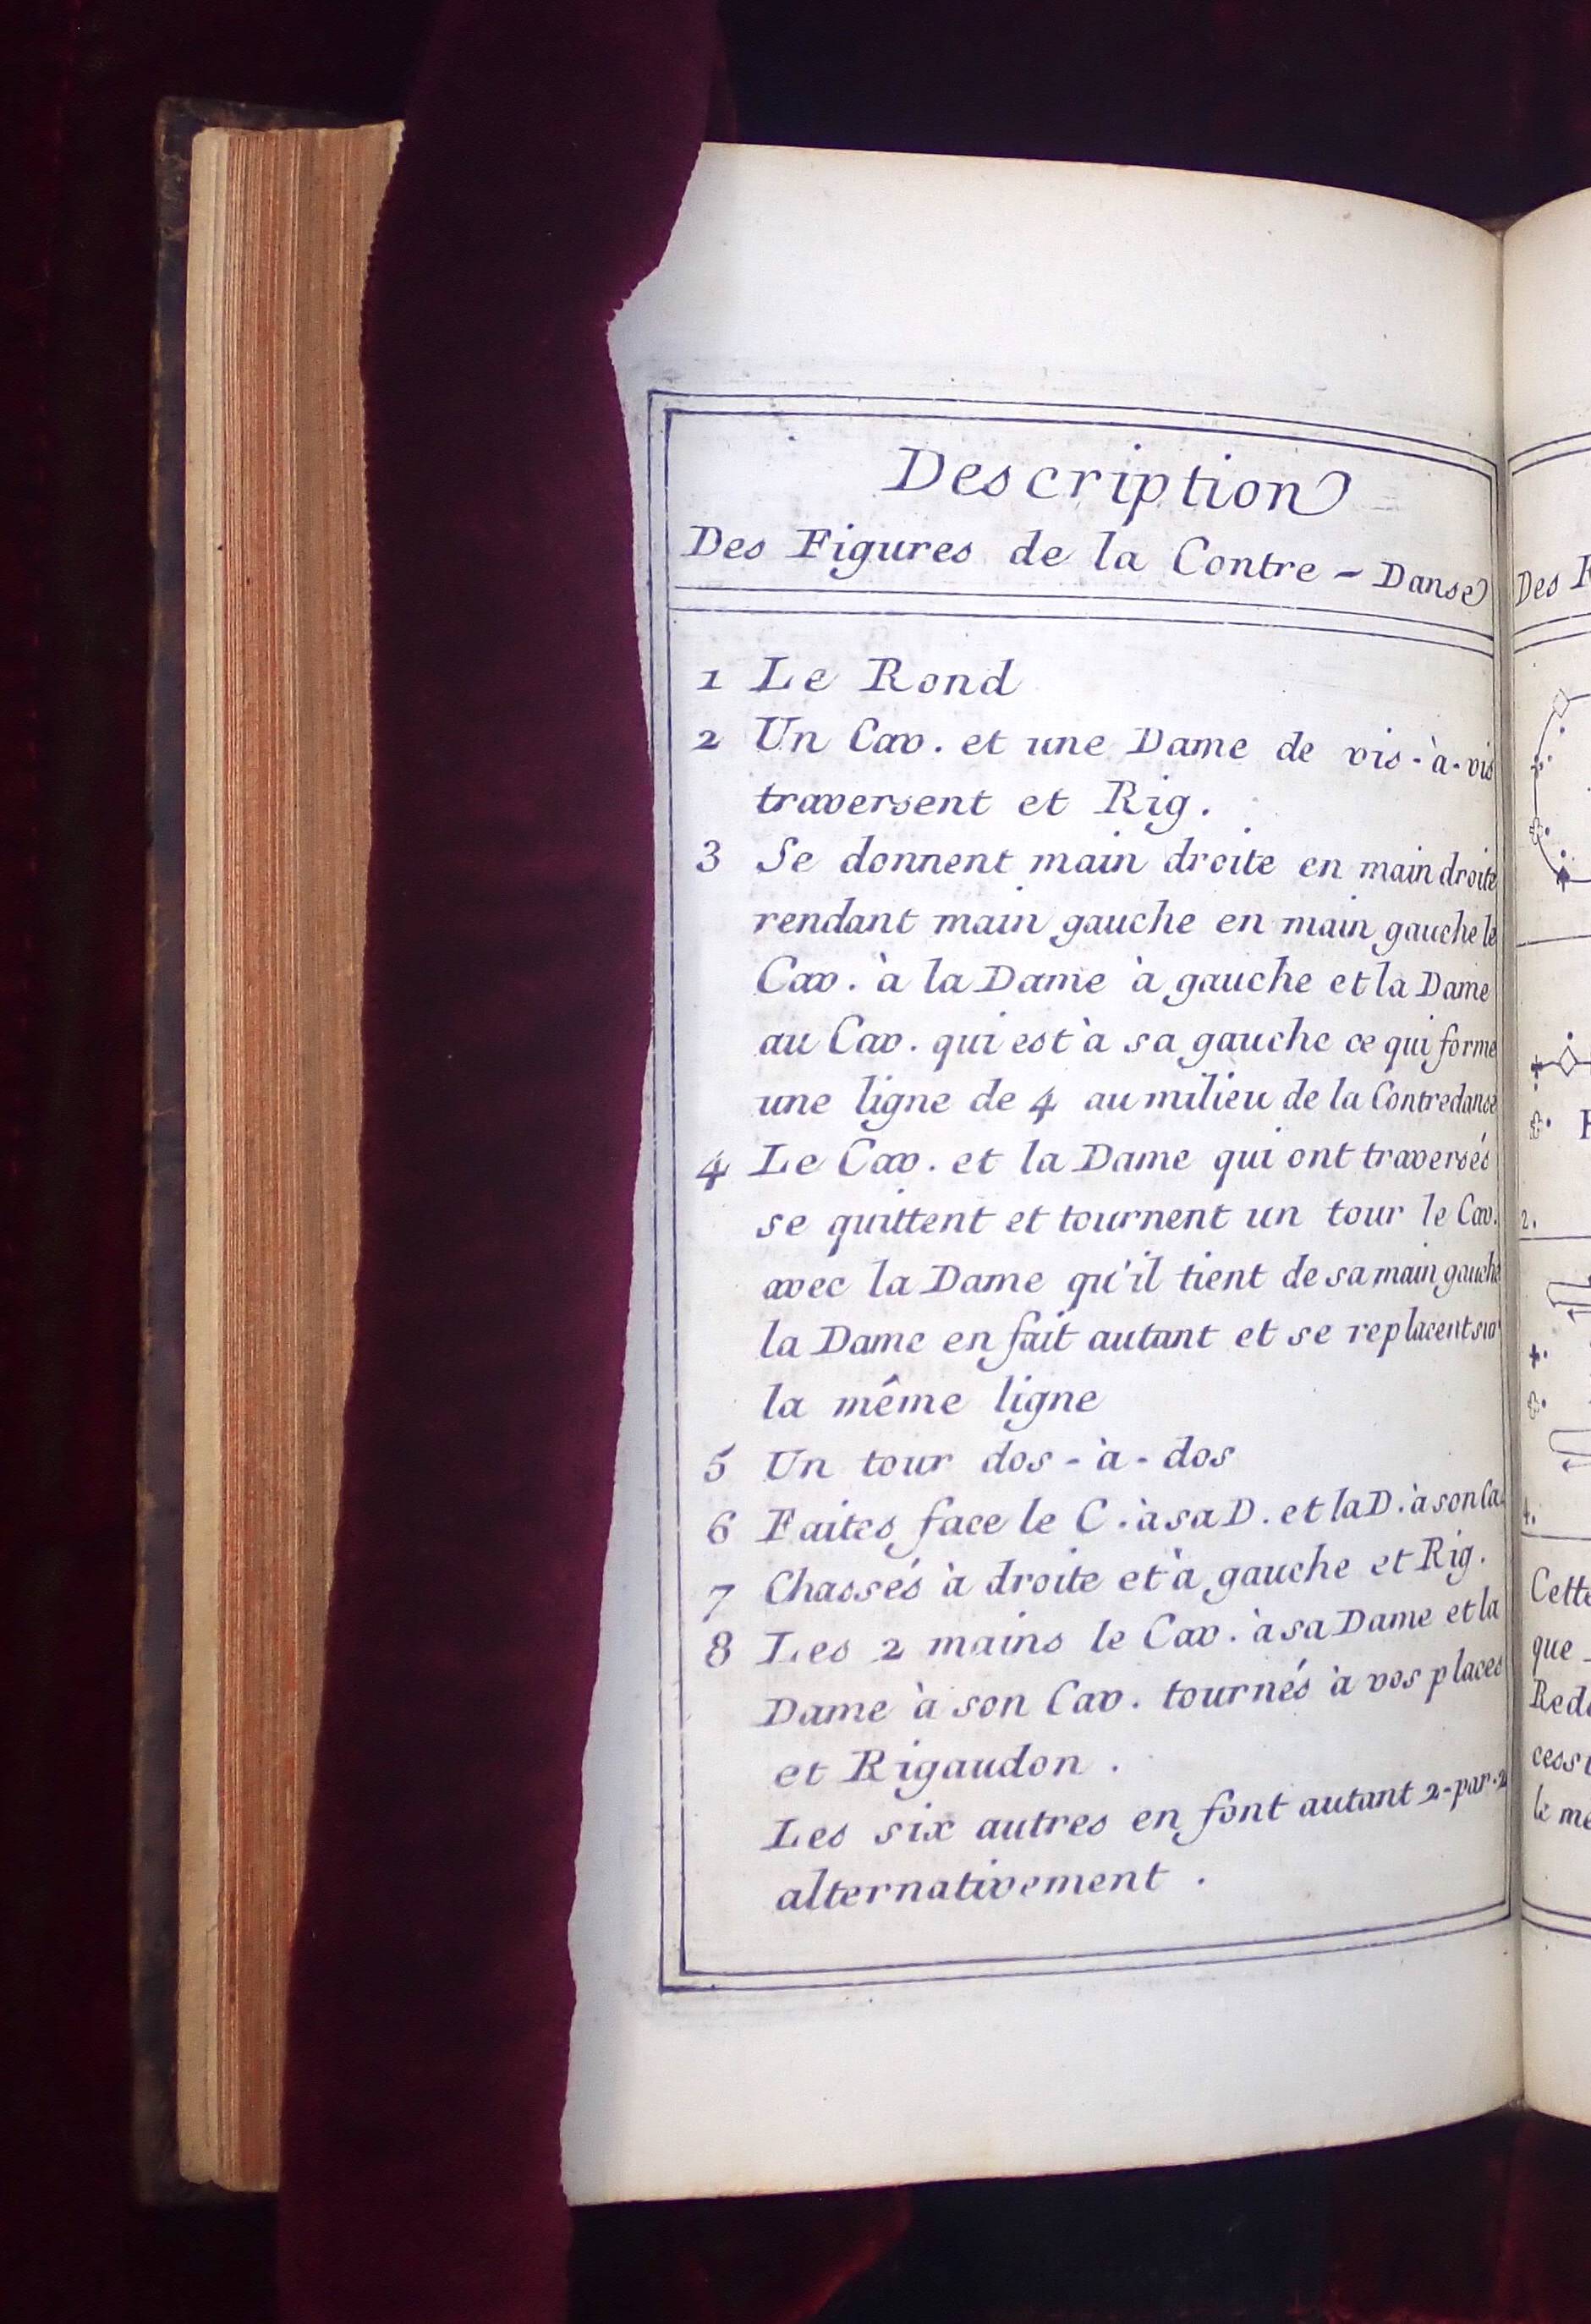 Description
Des Figures de la Contre - Danse
1 Le Rond
2 Un Cav. et une Dame de vis-à-vis
traversent et Rig.
3 Se donnent main droite en main droite
rendant main gauche en main gauche le
Cav. à la Dame à gauche et la Dame
au Cav. qui est à sa gauche ce qui forme
une ligne de 4 au milieu de la Contredanse
4 Le Cav. et la Dame qui ont traversés
se quittent et tournent un tour le Cav.
avec la Dame qu'il tient de sa main gauche
la Dame en fait autant et se replacent sur
la même ligne
5 Un tour dos-à-dos
6 Faites face le C. à sa D. et la D. à son Ca.
7 Chassés à droite et à gauche et Rig.
8 Les 2 mains le Cav. à sa Dame et la
Dame à son Cav. tournés à vos places
et Rigaudon.
Les six autres en font autant 2-par-2
alternativement.
Des F
2.
4.
Cette
que
Red
cess
le me